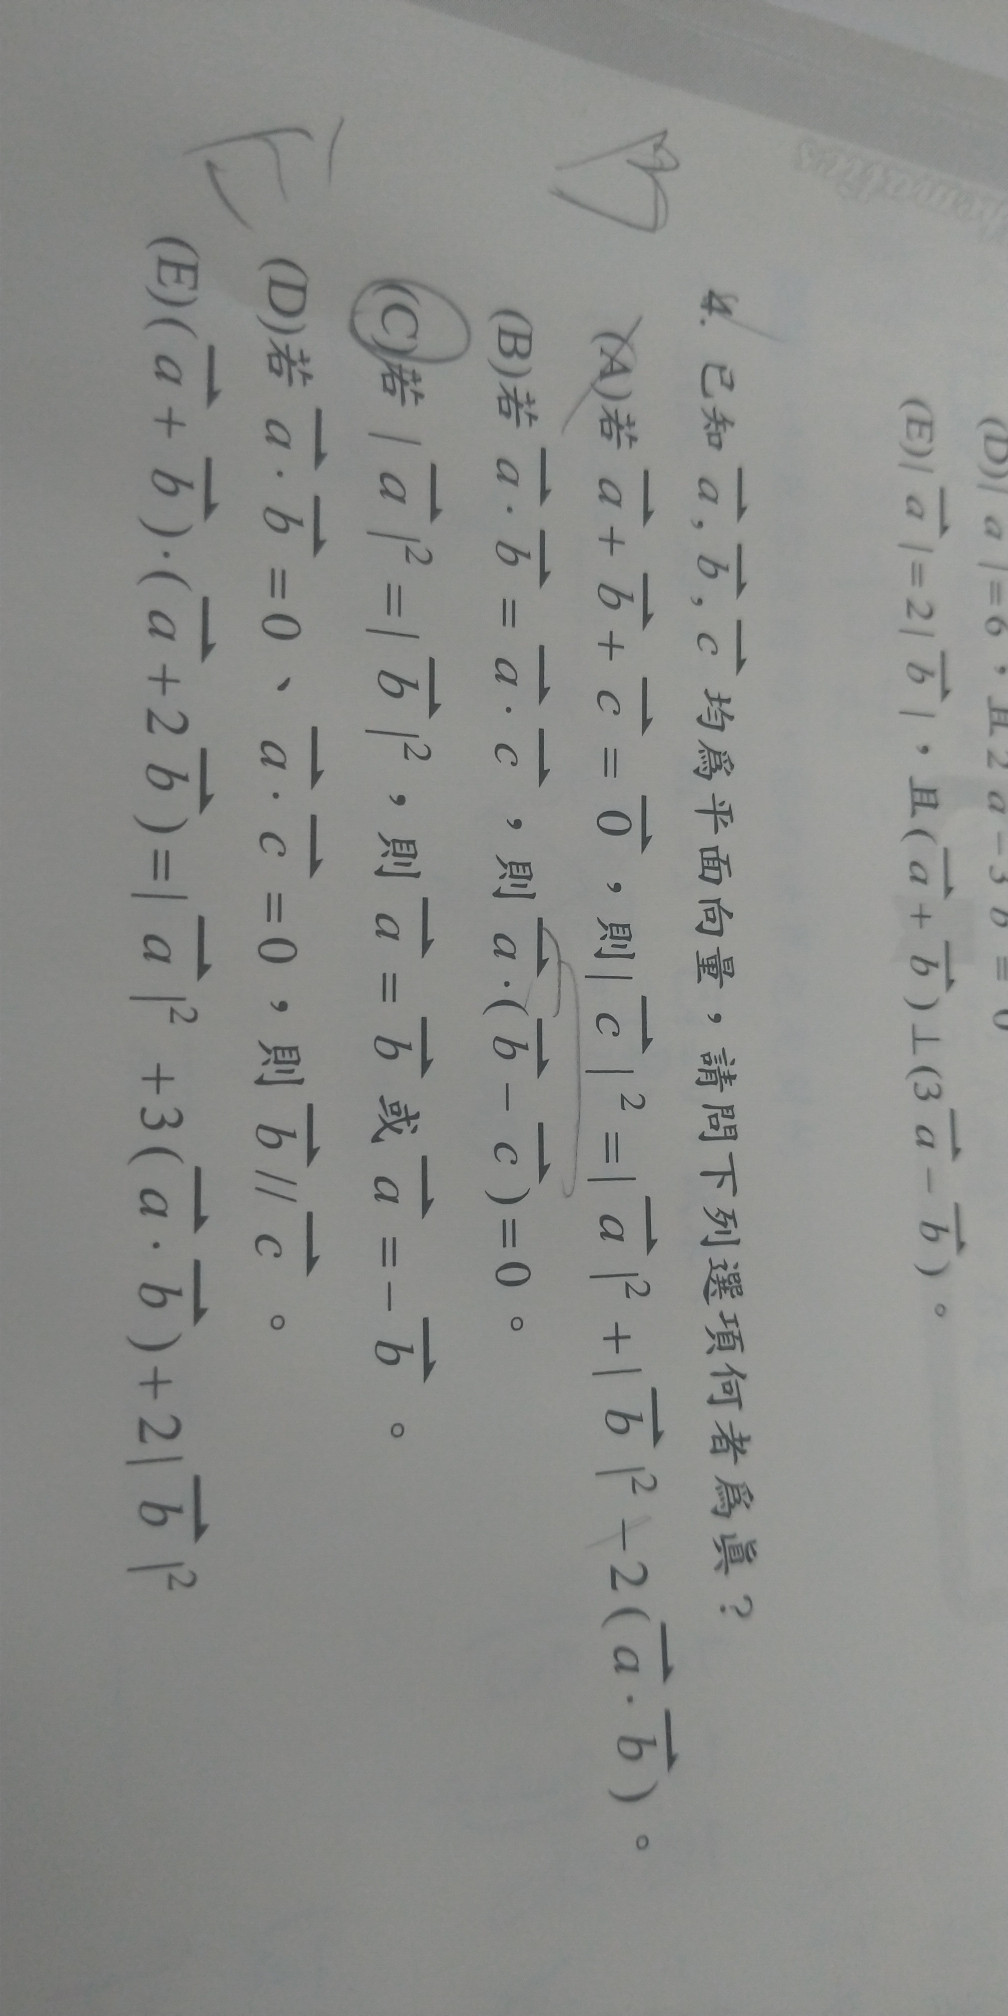 (D)| a |=6，且2 a − 3 b = 0
(E)| a⃗ |=2| b⃗ |，且( a⃗ + b⃗ )⊥(3 a⃗ − b⃗ )。
4. 已知 a⃗ , b⃗ , c⃗ 均為平面向量，請問下列選項何者為真？
(A)若 a⃗ + b⃗ + c⃗ = 0⃗ ，則| c⃗ |²=| a⃗ |²+| b⃗ |²−2( a⃗ · b⃗ )。
(B)若 a⃗ · b⃗ = a⃗ · c⃗ ，則 a⃗ ·( b⃗ − c⃗ )=0。
(C)若| a⃗ |²=| b⃗ |²，則 a⃗ = b⃗ 或 a⃗ =− b⃗ 。
(D)若 a⃗ · b⃗ =0、 a⃗ · c⃗ =0，則 b⃗ // c⃗ 。
(E)( a⃗ + b⃗ )·( a⃗ +2 b⃗ )=| a⃗ |²+3( a⃗ · b⃗ )+2| b⃗ |²